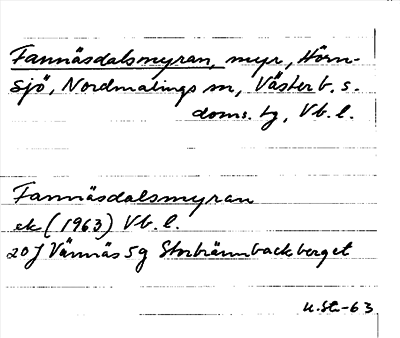 Fannäsdalsmyran, myr, Hörn-
sjö, Nordmalings sn, Västerb. s.
doms. tg, Vb. l.
Fannäsdalsmyran
ek (1963) Vb. l.
20 J Vännäs 5 g Storbrännbackberget